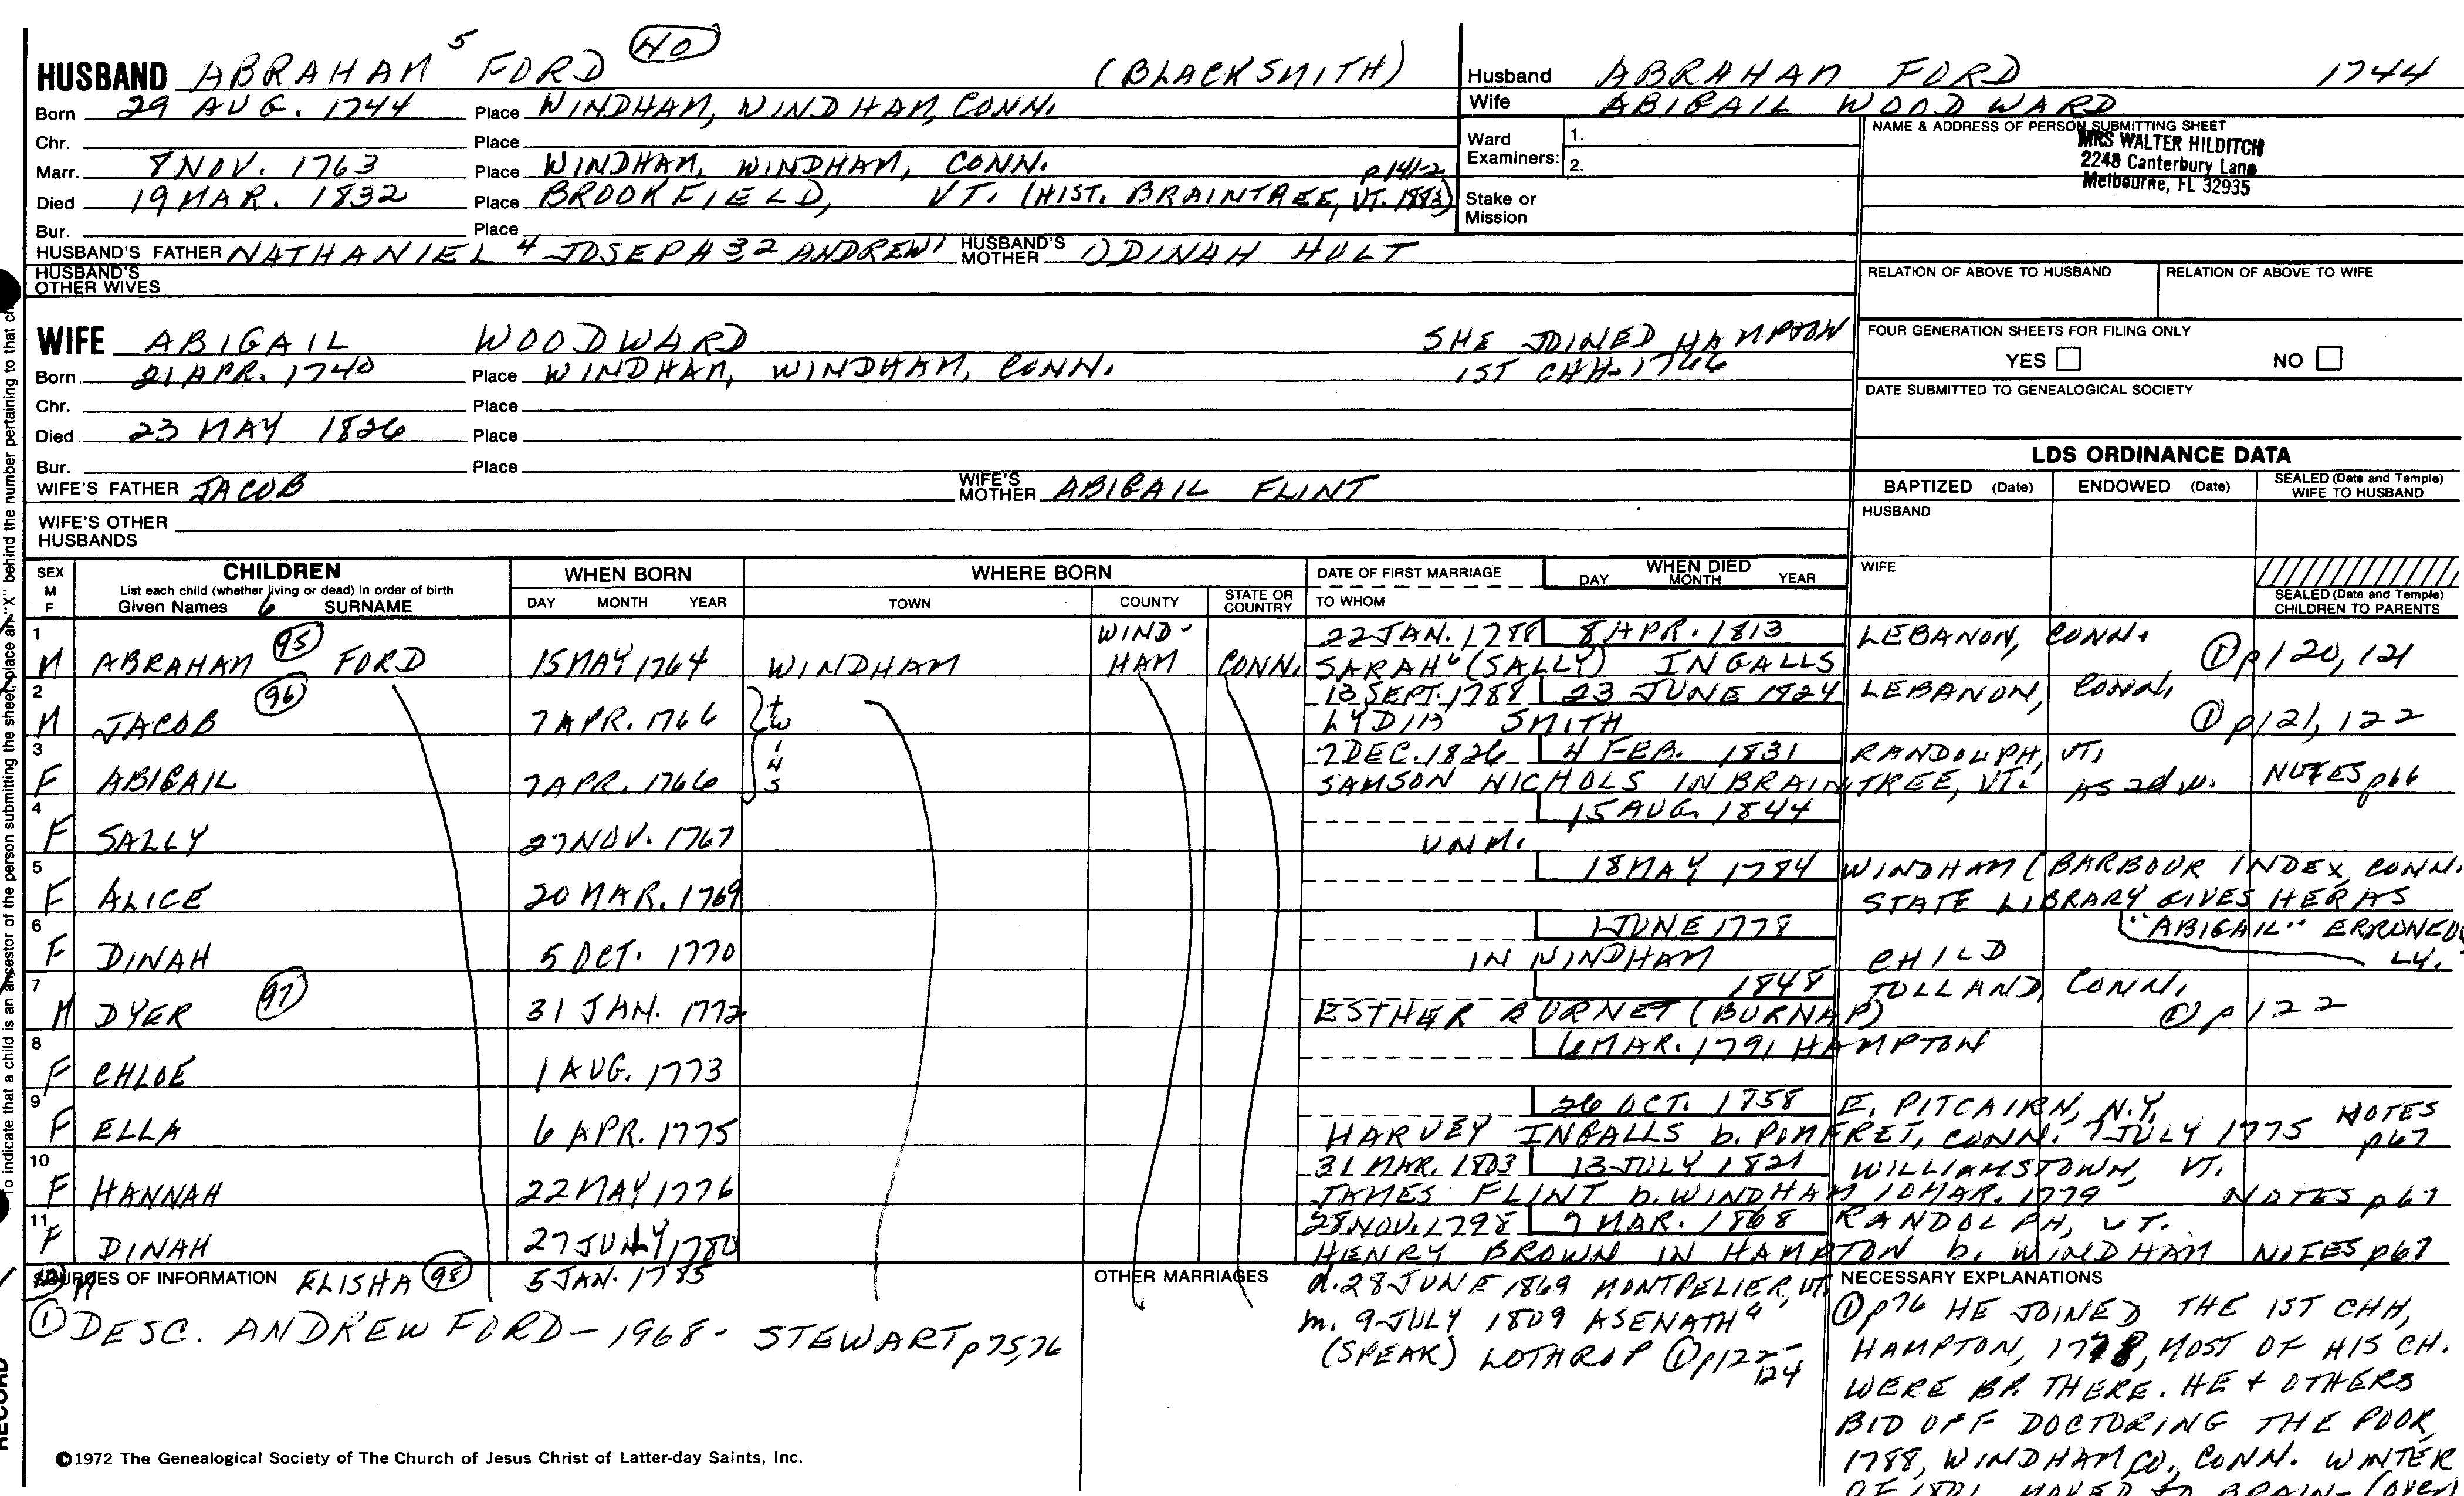 HUSBAND ABRAHAM 5 FORD 40 (BLACKSMITH)
Born 29 AUG. 1744 Place WINDHAM, WINDHAM, CONN.
Chr. Place
Marr. 8 NOV. 1763 Place WINDHAM, WINDHAM, CONN. p141-2
Died 19 MAR. 1832 Place BROOKFIELD, VT. (HIST. BRAINTREE, VT. 1883)
Bur. Place
HUSBAND'S FATHER NATHANIEL 4 JOSEPH 3,2 ANDREW 1 HUSBAND'S MOTHER 1) DINAH HOLT
HUSBAND'S OTHER WIVES
Husband ABRAHAM FORD 1744
Wife ABIGAIL WOODWARD
Ward Examiners: 1.
2.
Stake or Mission
NAME & ADDRESS OF PERSON SUBMITTING SHEET
MRS WALTER HILDITCH
2248 Canterbury Lane
Melbourne, FL 32935
RELATION OF ABOVE TO HUSBAND RELATION OF ABOVE TO WIFE
WIFE ABIGAIL WOODWARD SHE JOINED HAMPTON
Born 21 APR. 1740 Place WINDHAM, WINDHAM, CONN. 1ST CHH. 1766
Chr. Place
Died 23 MAY 1826 Place
Bur. Place
WIFE'S FATHER JACOB WIFE'S MOTHER ABIGAIL FLINT
WIFE'S OTHER HUSBANDS
FOUR GENERATION SHEETS FOR FILING ONLY
YES NO
DATE SUBMITTED TO GENEALOGICAL SOCIETY
LDS ORDINANCE DATA
BAPTIZED (Date) ENDOWED (Date) SEALED (Date and Temple) WIFE TO HUSBAND
HUSBAND
WIFE
SEALED (Date and Temple) CHILDREN TO PARENTS
SEX M F CHILDREN WHEN BORN WHERE BORN DATE OF FIRST MARRIAGE WHEN DIED
List each child (whether living or dead) in order of birth DAY MONTH YEAR TOWN COUNTY STATE OR COUNTRY TO WHOM DAY MONTH YEAR
Given Names 6 SURNAME
1 WIND- 22 JAN. 1788 8 APR. 1813 LEBANON, CONN.
M ABRAHAM 95 FORD 15 MAY 1764 WINDHAM HAM CONN. SARAH 6 (SALLY) INGALLS ① p120, 121
2 96 13 SEPT. 1788 23 JUNE 1824 LEBANON, CONN.
M JACOB 7 APR. 1766 twins LYDIA SMITH ① p121, 122
3 7 DEC. 1826 4 FEB. 1831 RANDOLPH, VT.
F ABIGAIL 7 APR. 1766 SAMSON NICHOLS IN BRAINTREE, VT. AS 2d w. NOTES p66
4 15 AUG. 1844
F SALLY 27 NOV. 1767 UNM.
5 18 MAY 1784 WINDHAM (BARBOUR INDEX, CONN.
F ALICE 20 MAR. 1769 STATE LIBRARY GIVES HER AS
6 1 JUNE 1778 "ABIGAIL" ERRONEOUS
F DINAH 5 OCT. 1770 IN WINDHAM CHILD LY.
7 1848 TOLLAND, CONN.
M DYER 97 31 JAN. 1772 ESTHER BURNET (BURNAP) ① p122
8 6 MAR. 1791 HAMPTON
F CHLOE 1 AUG. 1773
9 26 OCT. 1858 E. PITCAIRN, N.Y. NOTES
F ELLA 6 APR. 1775 HARVEY INGALLS b. POMFRET, CONN. 7 JULY 1775 p67
10 31 MAR. 1803 13 JULY 1821 WILLIAMSTOWN, VT.
F HANNAH 22 MAY 1776 JAMES FLINT b. WINDHAM 10 MAR. 1779 NOTES p67
11 28 NOV. 1798 9 MAR. 1868 RANDOLPH, VT.
F DINAH 27 JULY 1780 HENRY BROWN IN HAMPTON b. WINDHAM NOTES p67
12 M SOURCES OF INFORMATION ELISHA 98 5 JAN. 1785 OTHER MARRIAGES d. 28 JUNE 1869 MONTPELIER, VT.
① DESC. ANDREW FORD - 1968 - STEWART p75,76 m. 9 JULY 1809 ASENATH
(SPEAK) LOTHROP ① p122-124
NECESSARY EXPLANATIONS
① p76 HE JOINED THE 1ST CHH,
HAMPTON, 1778, MOST OF HIS CH.
WERE BP. THERE. HE + OTHERS
BID OFF DOCTORING THE POOR,
1788, WINDHAM CO., CONN. WINTER
OF 1801 MOVED TO BRAIN- (over)
©1972 The Genealogical Society of The Church of Jesus Christ of Latter-day Saints, Inc.
To indicate that a child is an ancestor of the person submitting the sheet, place an "X" behind the number pertaining to that
RECORD